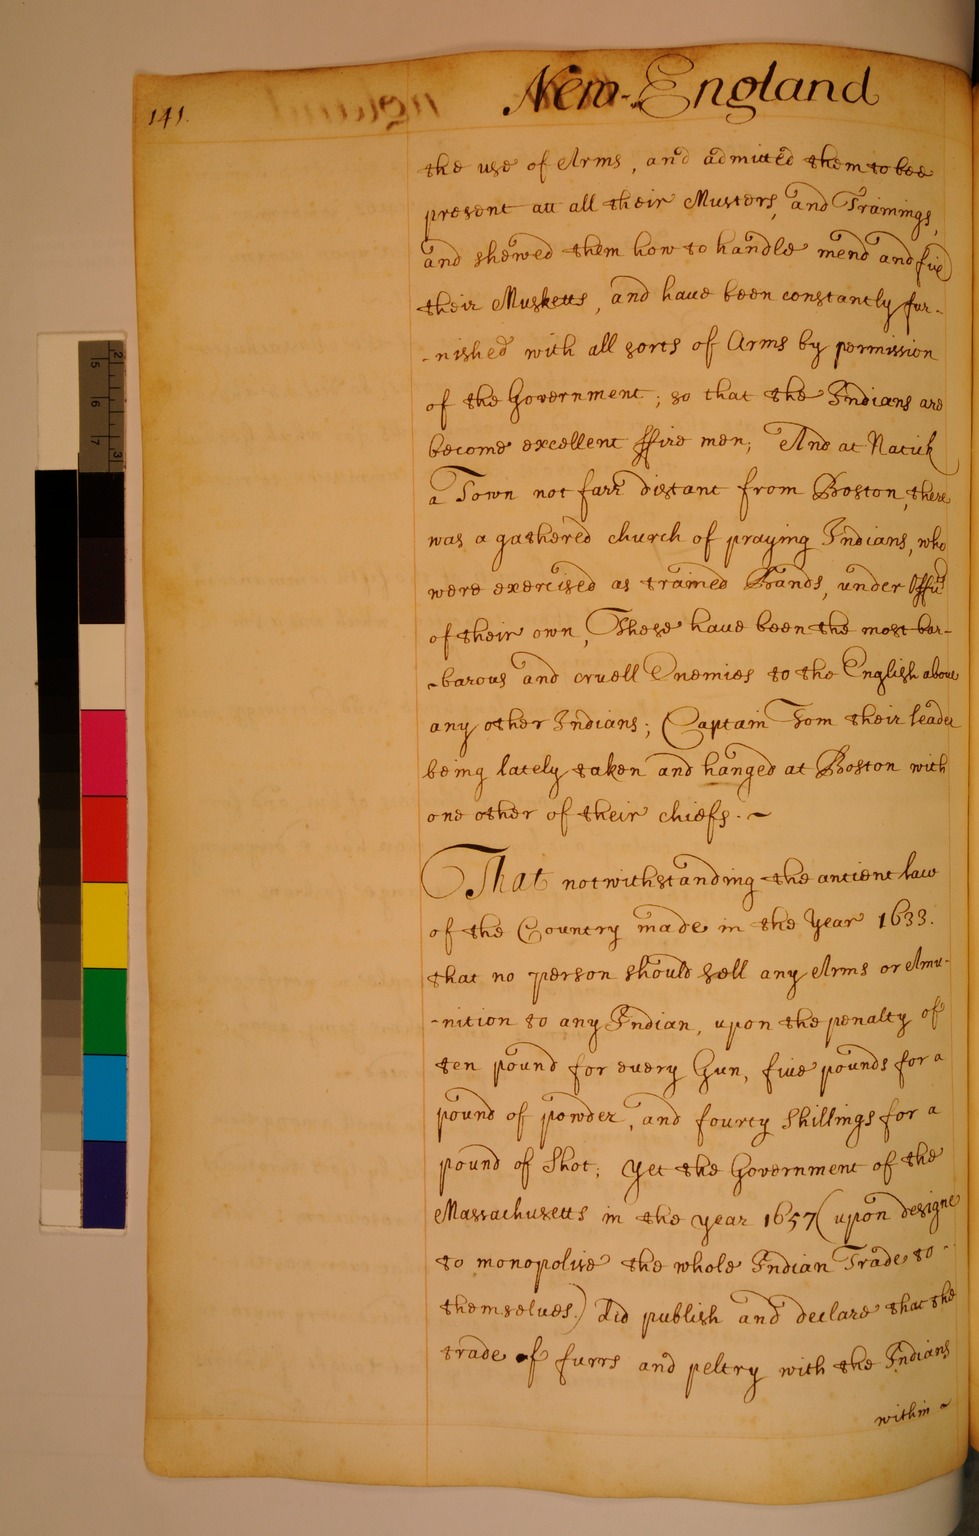 141.
New-England
the use of Arms, and admitted them to bee
present att all their Musters, and Trainings,
and shewed them how to handle mend and fix
their Musketts, and have been constantly fur-
-nished with all sorts of Arms by permission
of the Government; so that the Indians are
become excellent ffire men; And at Natick
a Town not farr distant from Boston, there
was a gathered church of praying Indians, who
were exercised as trained Bands, under
of their own, These have been the most bar-
-barous and cruell Enemies to the English above
any other Indians; Captain Tom their leader
being lately taken and hanged at Boston with
one other of their chiefs.~
That notwithstanding the antient law
of the Country made in the Year 1633.
that no person should sell any Arms or Amu-
-nition to any Indian, upon the penalty of
ten pound for every Gun, five pounds for a
pound of powder, and fourty shillings for a
pound of shot; Yet the Government of the
Massachusetts in the year 1657 (upon designe
to monopolise the whole Indian Trade to-
themselves.) did publish and declare that the
trade of furrs and peltry with the Indians
within ~
1 5
6
7
2
3